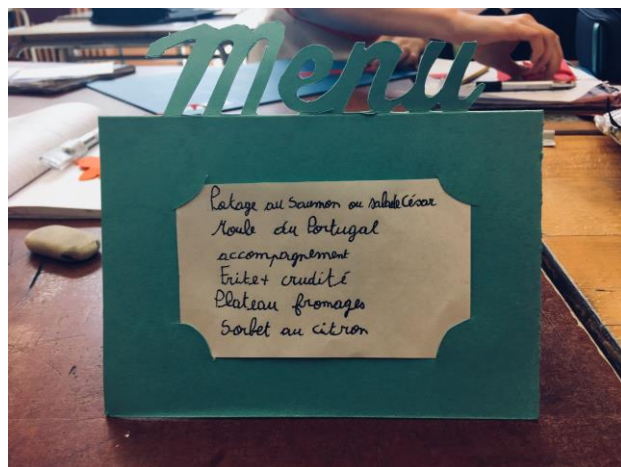 Menu
Potage au Saumon ou salade César
Moule du Portugal
accompagnement
Frite + crudité
Plateau fromages
Sorbet au citron